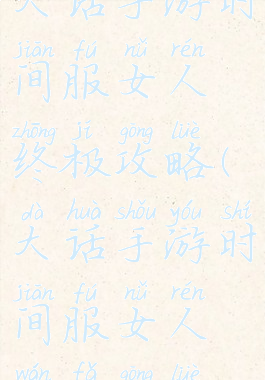 大话手游时
jiān fú nǚ rén
间服女人
zhōng jí gōng lüè
终极攻略(
dà huà shǒu yóu shí
大话手游时
jiān fú nǚ rén
间服女人
wán fǎ gōng lüè